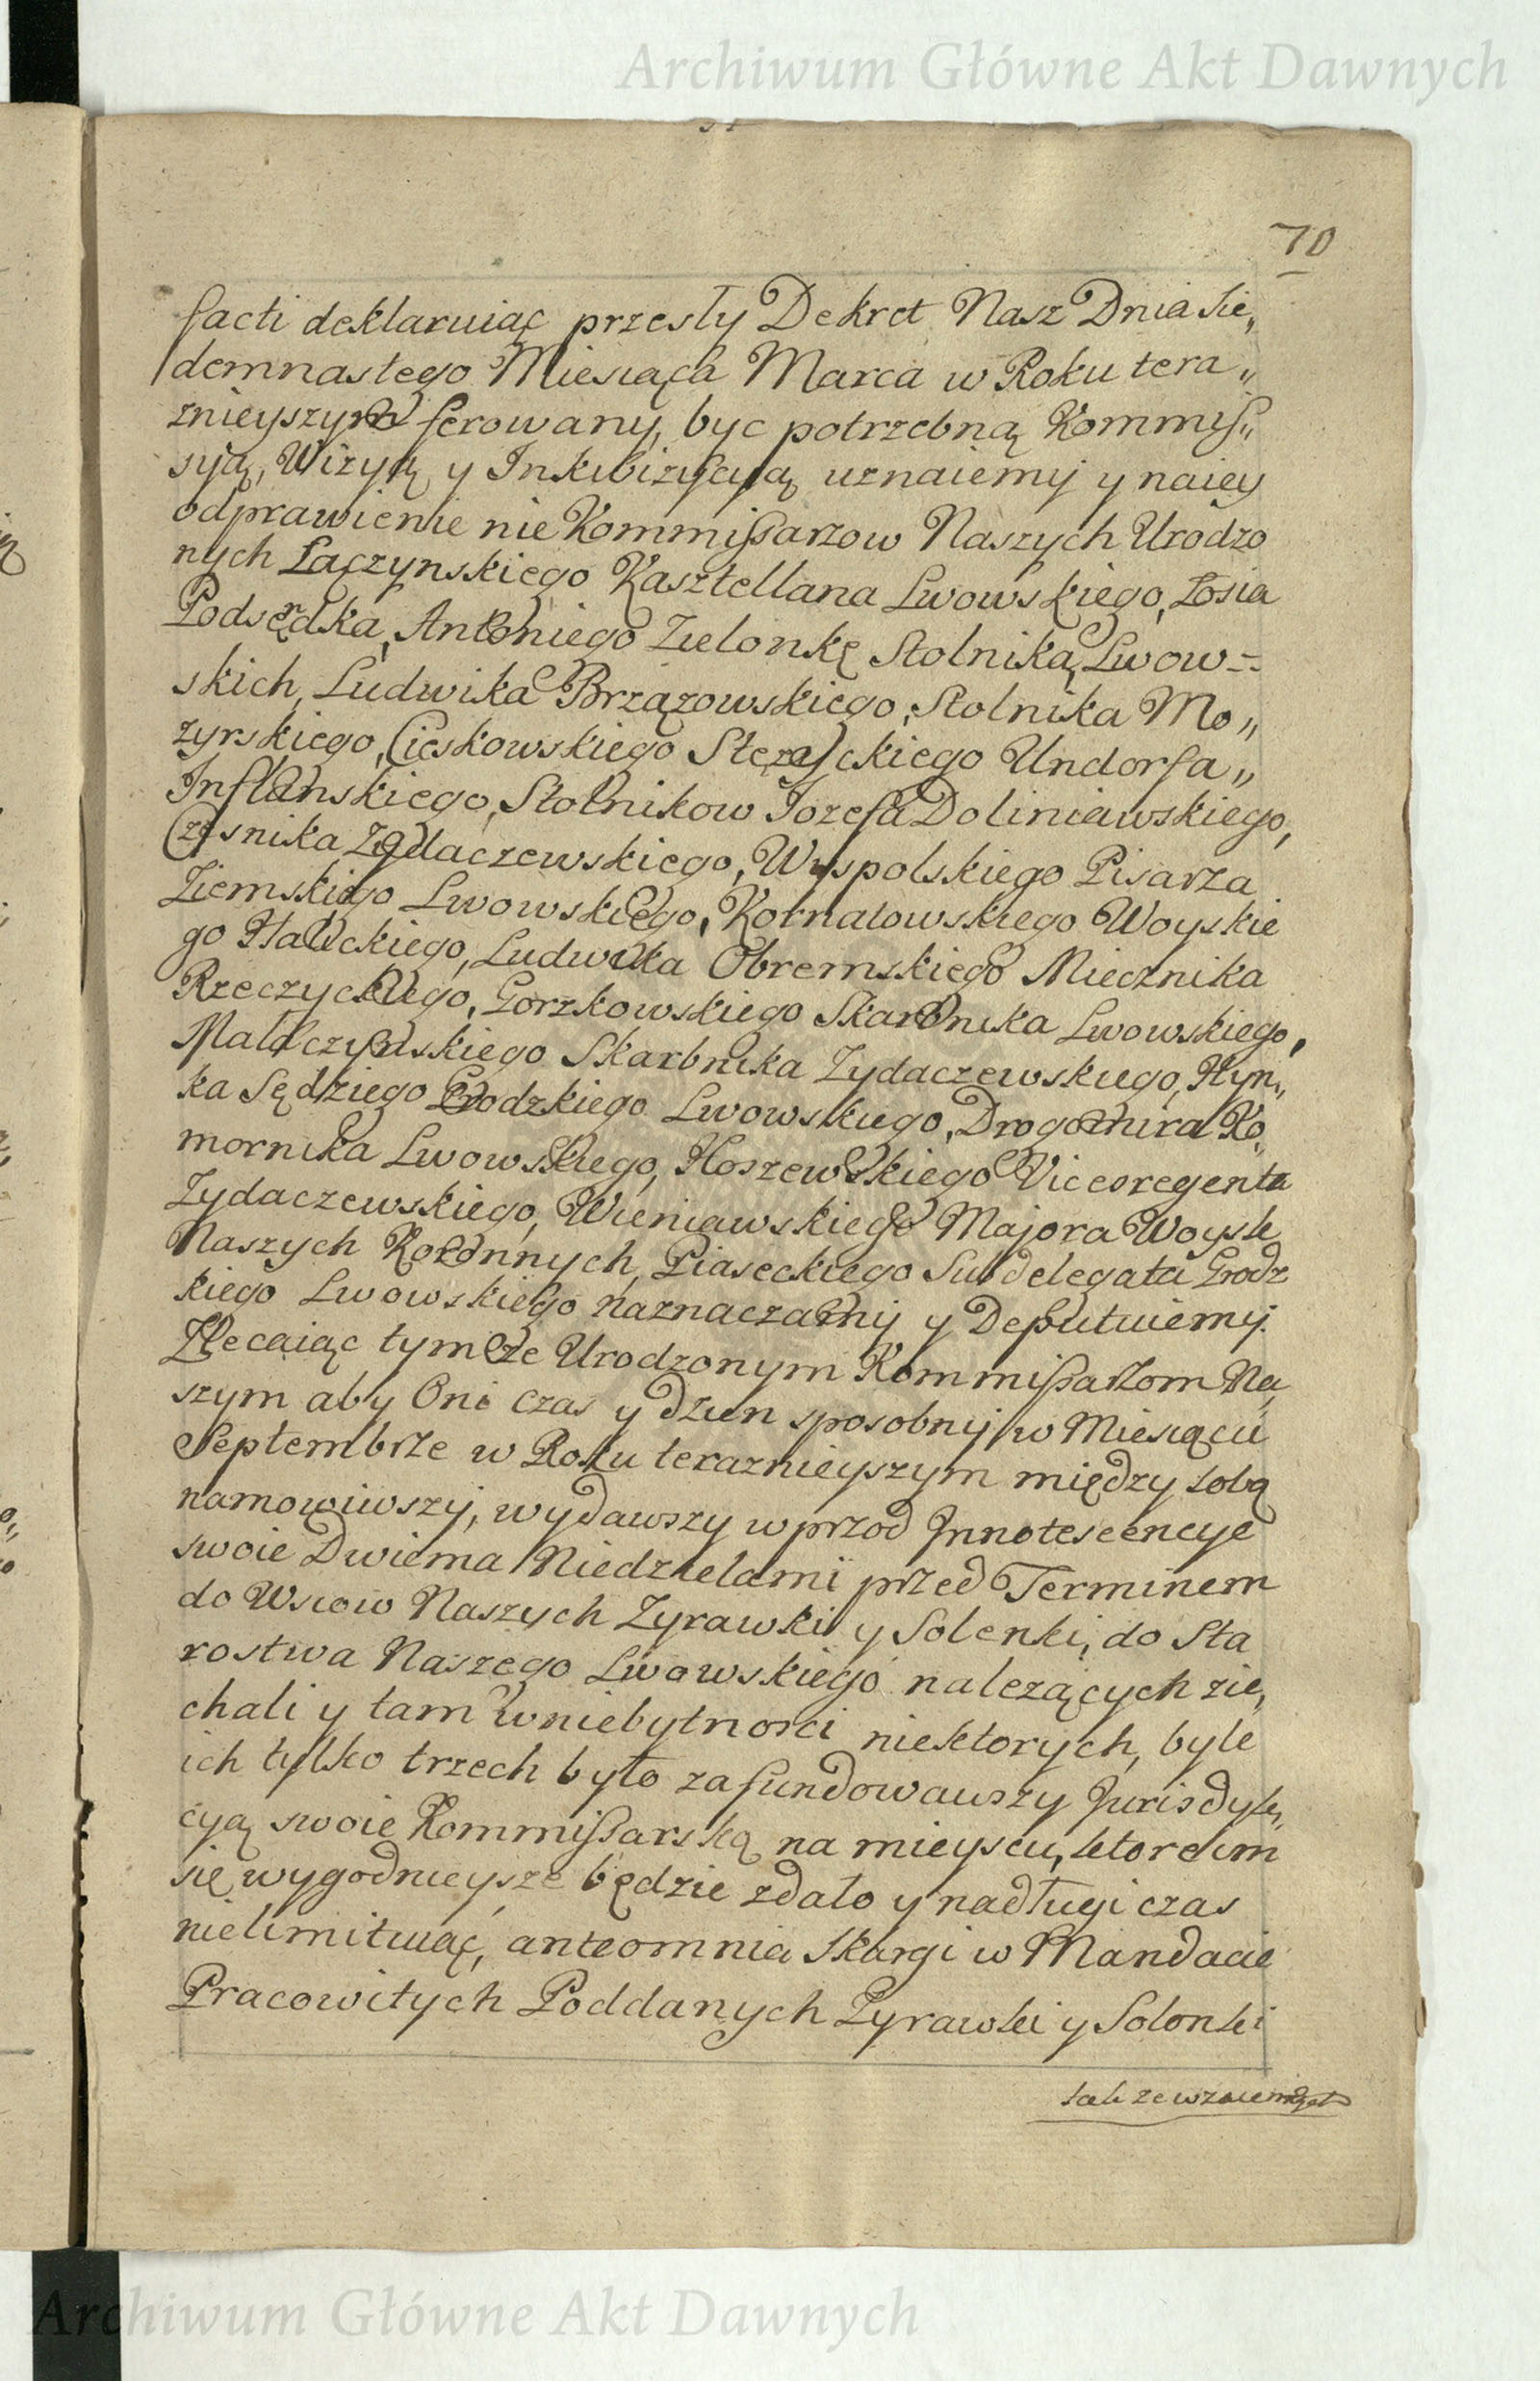 Archiwum Główne Akt Dawnych
70
facti deklaruiąc przesły Dekret Nasz Dnia Sie„
demnastego Miesiąca Marca w Roku tera„
znieyszym ferowany, byc potrzebną Kommiss„
syią, Wizyią y Inkwizycyią uznaiemy y naiey
odprawienie nie Kommissarzow Naszych Urodzo
nych Łączynskiego Kasztellana Lwowskiego, Łosia
Podsędka, Antoniego Zielonkę Stolnika, Lwow=
skich, Ludwika Brzązowskiego, Stolnika Mo„
zyrskiego, Cieskowskiego Stezyckiego Undorfa„
Inflanskiego, Stolnikow Jozefa Doliniawskiego,
Czesnika Zydaczewskiego, Wyspolskiego Pisarza
Ziemskiego Lwowskiego, Kornatowskiego Woyskie
go Halickiego, Ludwika Obremskiego Miecznika
Rzeczyckiego, Gorzkowskiego Skarbnika Lwowskiego,
Malczynskiego Skarbnika Zydaczewskiego, Hyn„
ka Sędziego Grodzkiego Lwowskiego, Drogomira Ko„
mornika Lwowskiego, Hoszewskiego Viceregenta
Zydaczewskiego, Wieniawskiego Majora Woysk
Naszych Koronnych, Piaseckiego Subdelegata Grodz
kiego Lwowskiego naznaczamy y Deputuiemy.
Zlecaiąc tymże Urodzonym Kommissarzom Na„
szym aby Oni czas y dzien sposobny w Miesiącu
Septembrze w Roku teraznieyszym między sobą
namowiwszy, wydawszy wprzod Innotescencye
swoie Dwiema Niedzielami przed Terminem
do Wsiow Naszych Zyrawki y Solenki, do Sta
rostwa Naszego Lwowskiego nalezących zie„
chali y tam wniebytnosci niektorych, byle
ich tylko trzech było zafundowawszy Jurisdyk„
cyą swoie Kommissarską na mieyscu, ktore im
się wygodnieysze będzie zdało y nadługi czas
nielimituiąc, anteomnia Skargi w Mandacie
Pracowitych Poddanych Zyrawki y Solonki
Archiwum Główne Akt Dawnych